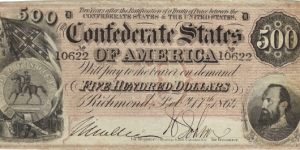 Two Years after the Ratification of a Treaty of Peace between the
CONFEDERATE STATES & THE UNITED STATES,
500 D D 500
Confederate States
10622 OF AMERICA 10622
Will pay to the bearer on demand
FIVE HUNDRED DOLLARS
Richmond Feb 17th 1864